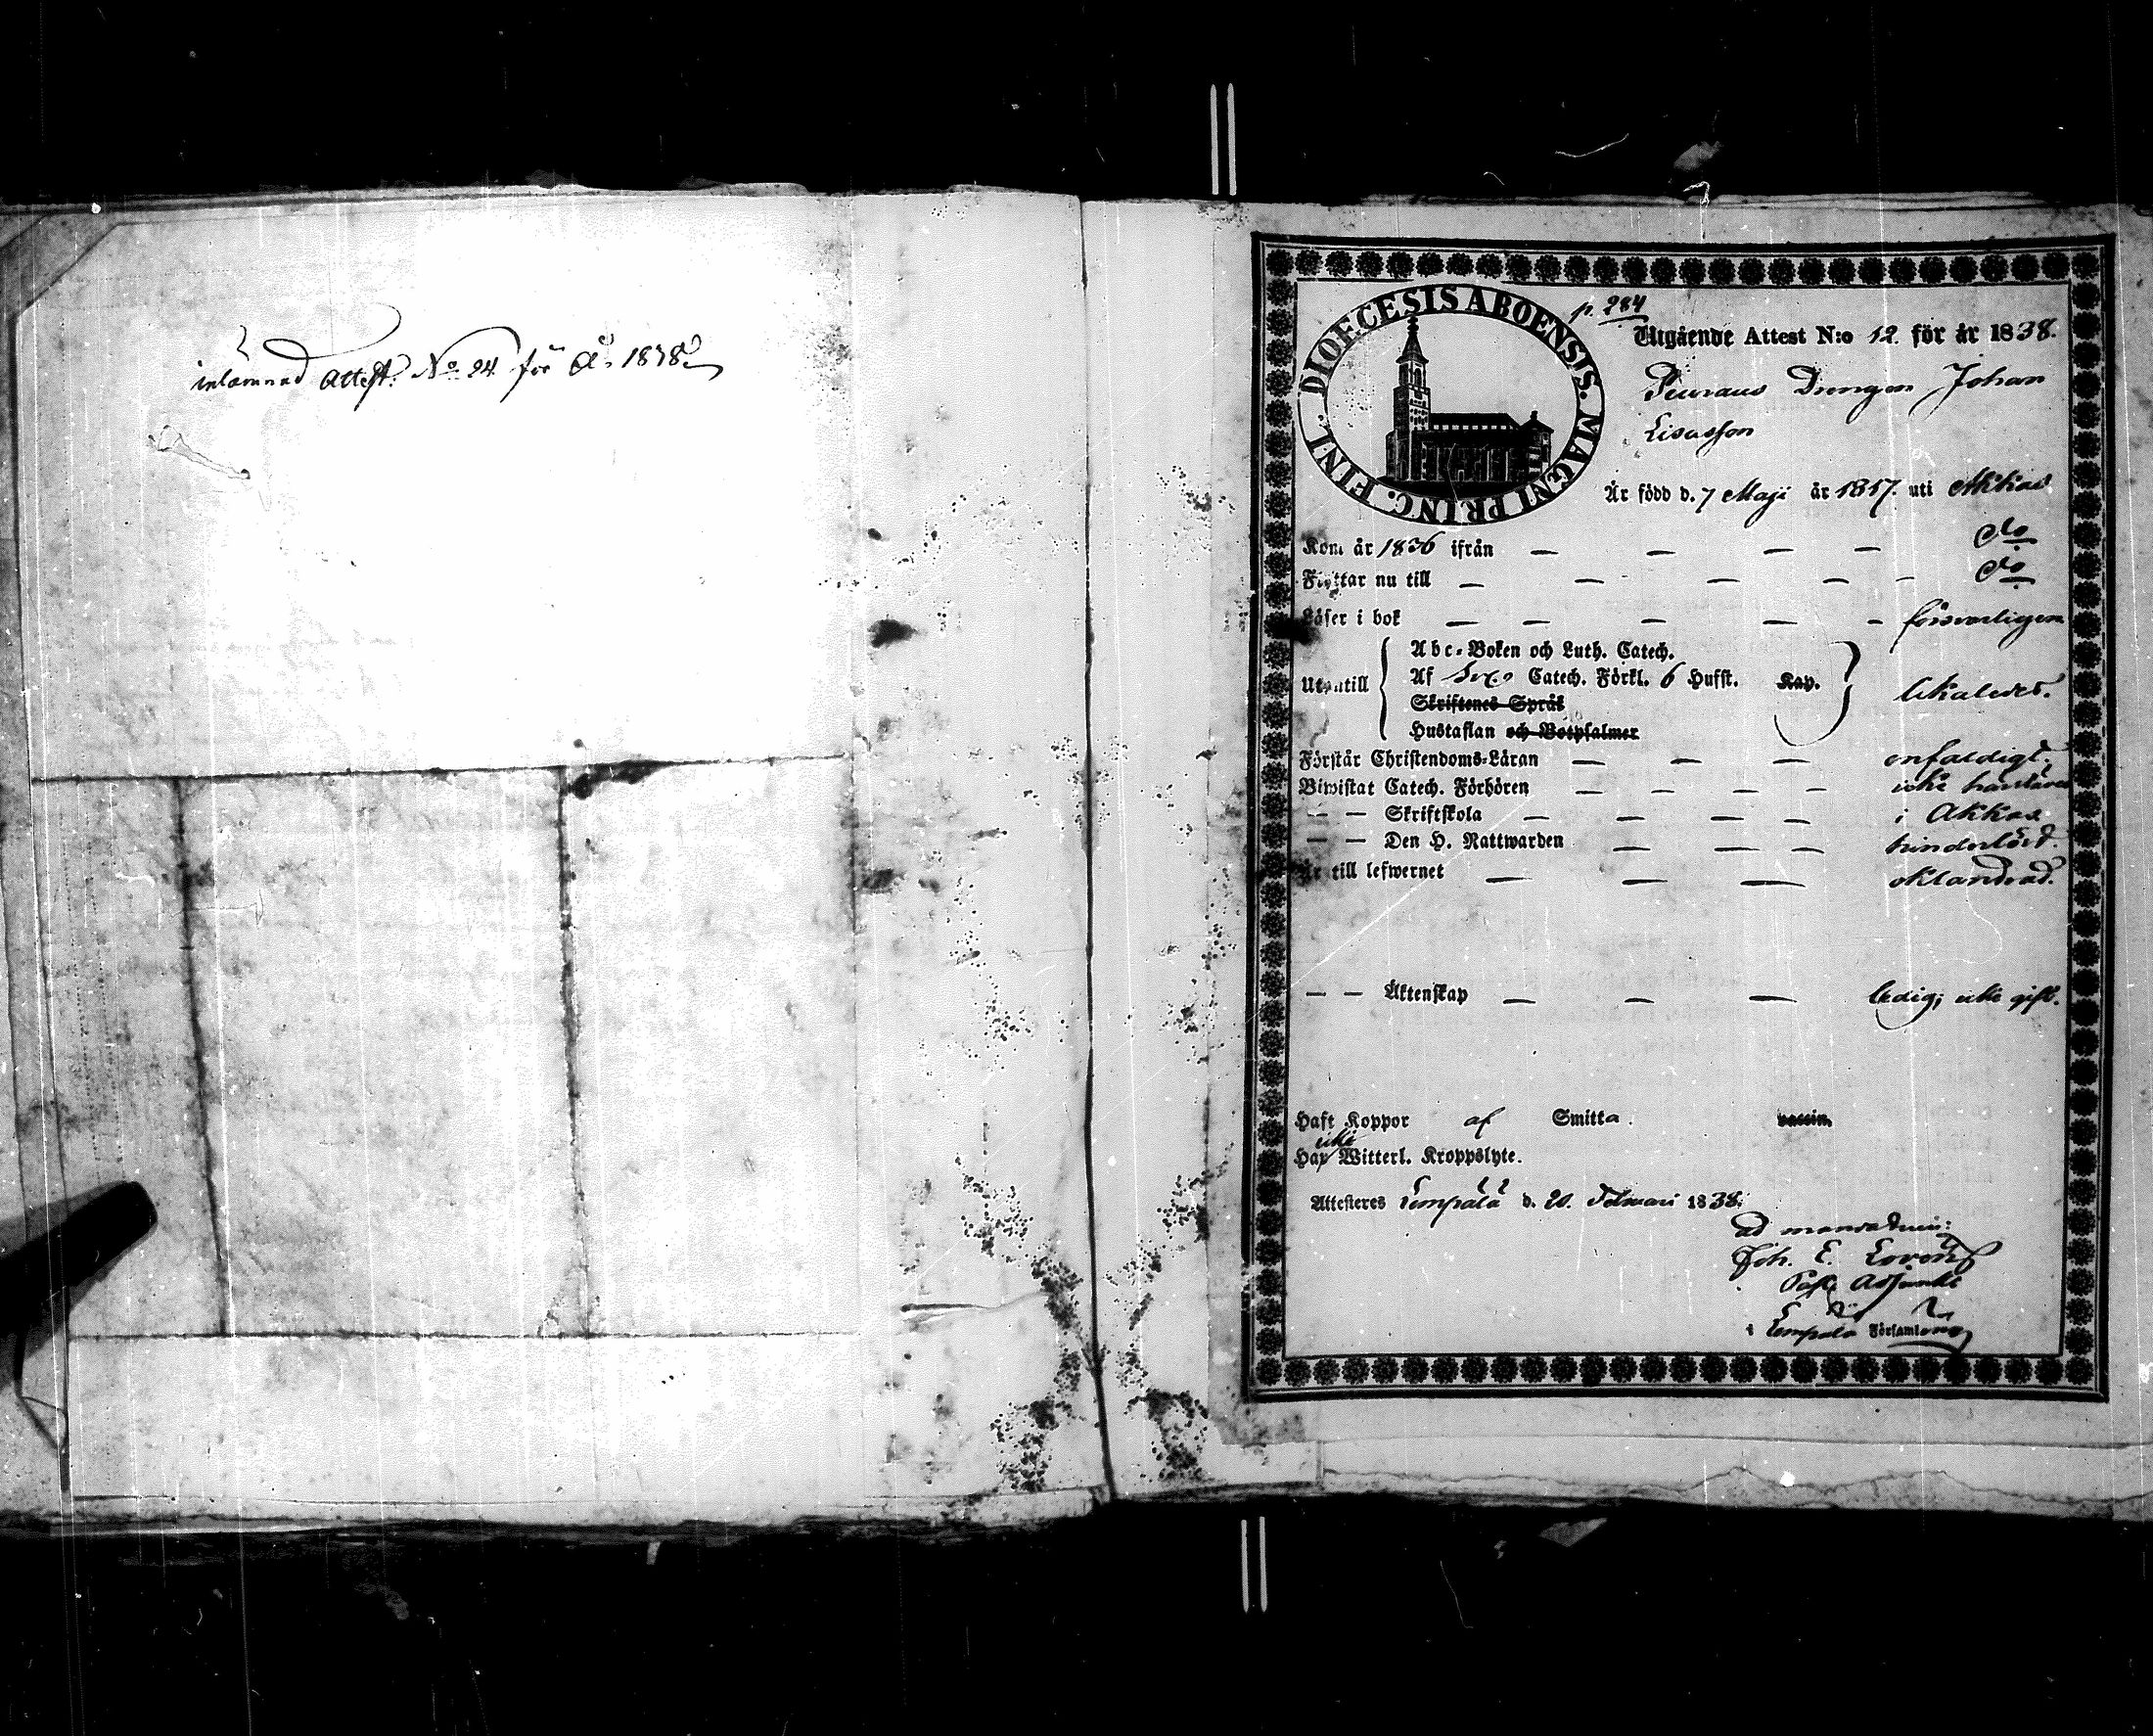 inlämnad Attest. No 24 för År 1838
DIOECESIS ABOENSIS. MAGNI PRINC. FINL.
p. 284
Utgående Attest N:o 12. för år 1838.
Drengen Johan
Är född d. 7 Maji år 1817. uti Akkas
Kom år 1836 ifrån — — — — do
Flyttar nu till — — — — — do
Läser i bok — — — — — försvarligen
Abc-Boken och Luth. Catech.
Utantill Af Sveb. Catech. Förkl. 6 Hufst. Kap. likaledes.
Skriftenes Språk
Hustaflan och Botpsalmer
Förstår Christendoms-Läran — — — enfaldigt.
Biwistat Catech. Förhören — — — — icke
— — Skriftskola — — — — i Akkas
— — Den H. Nattwarden — — — hinderlöst.
Är till lefwernet — — — oklandrad.
— — Äktenskap — — — ledig; icke gift.
Haft Koppor af Smitta. vaccin.
icke
Har Witterl. Kroppslyte.
Attesteras Lempälä d. 20. Februari 1838.
ad mandatum:
Joh. E.
Past. Adjunkt
i Lempälä Församling